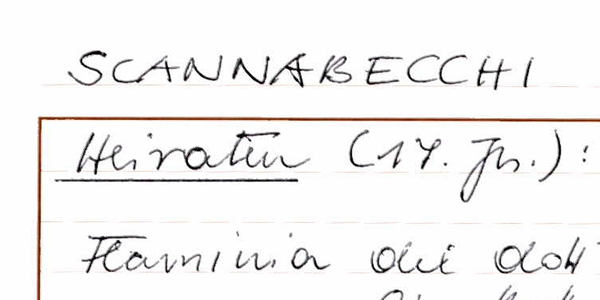 SCANNABECCHI
Heiraten (17. Jh.):
Flaminia dei dott